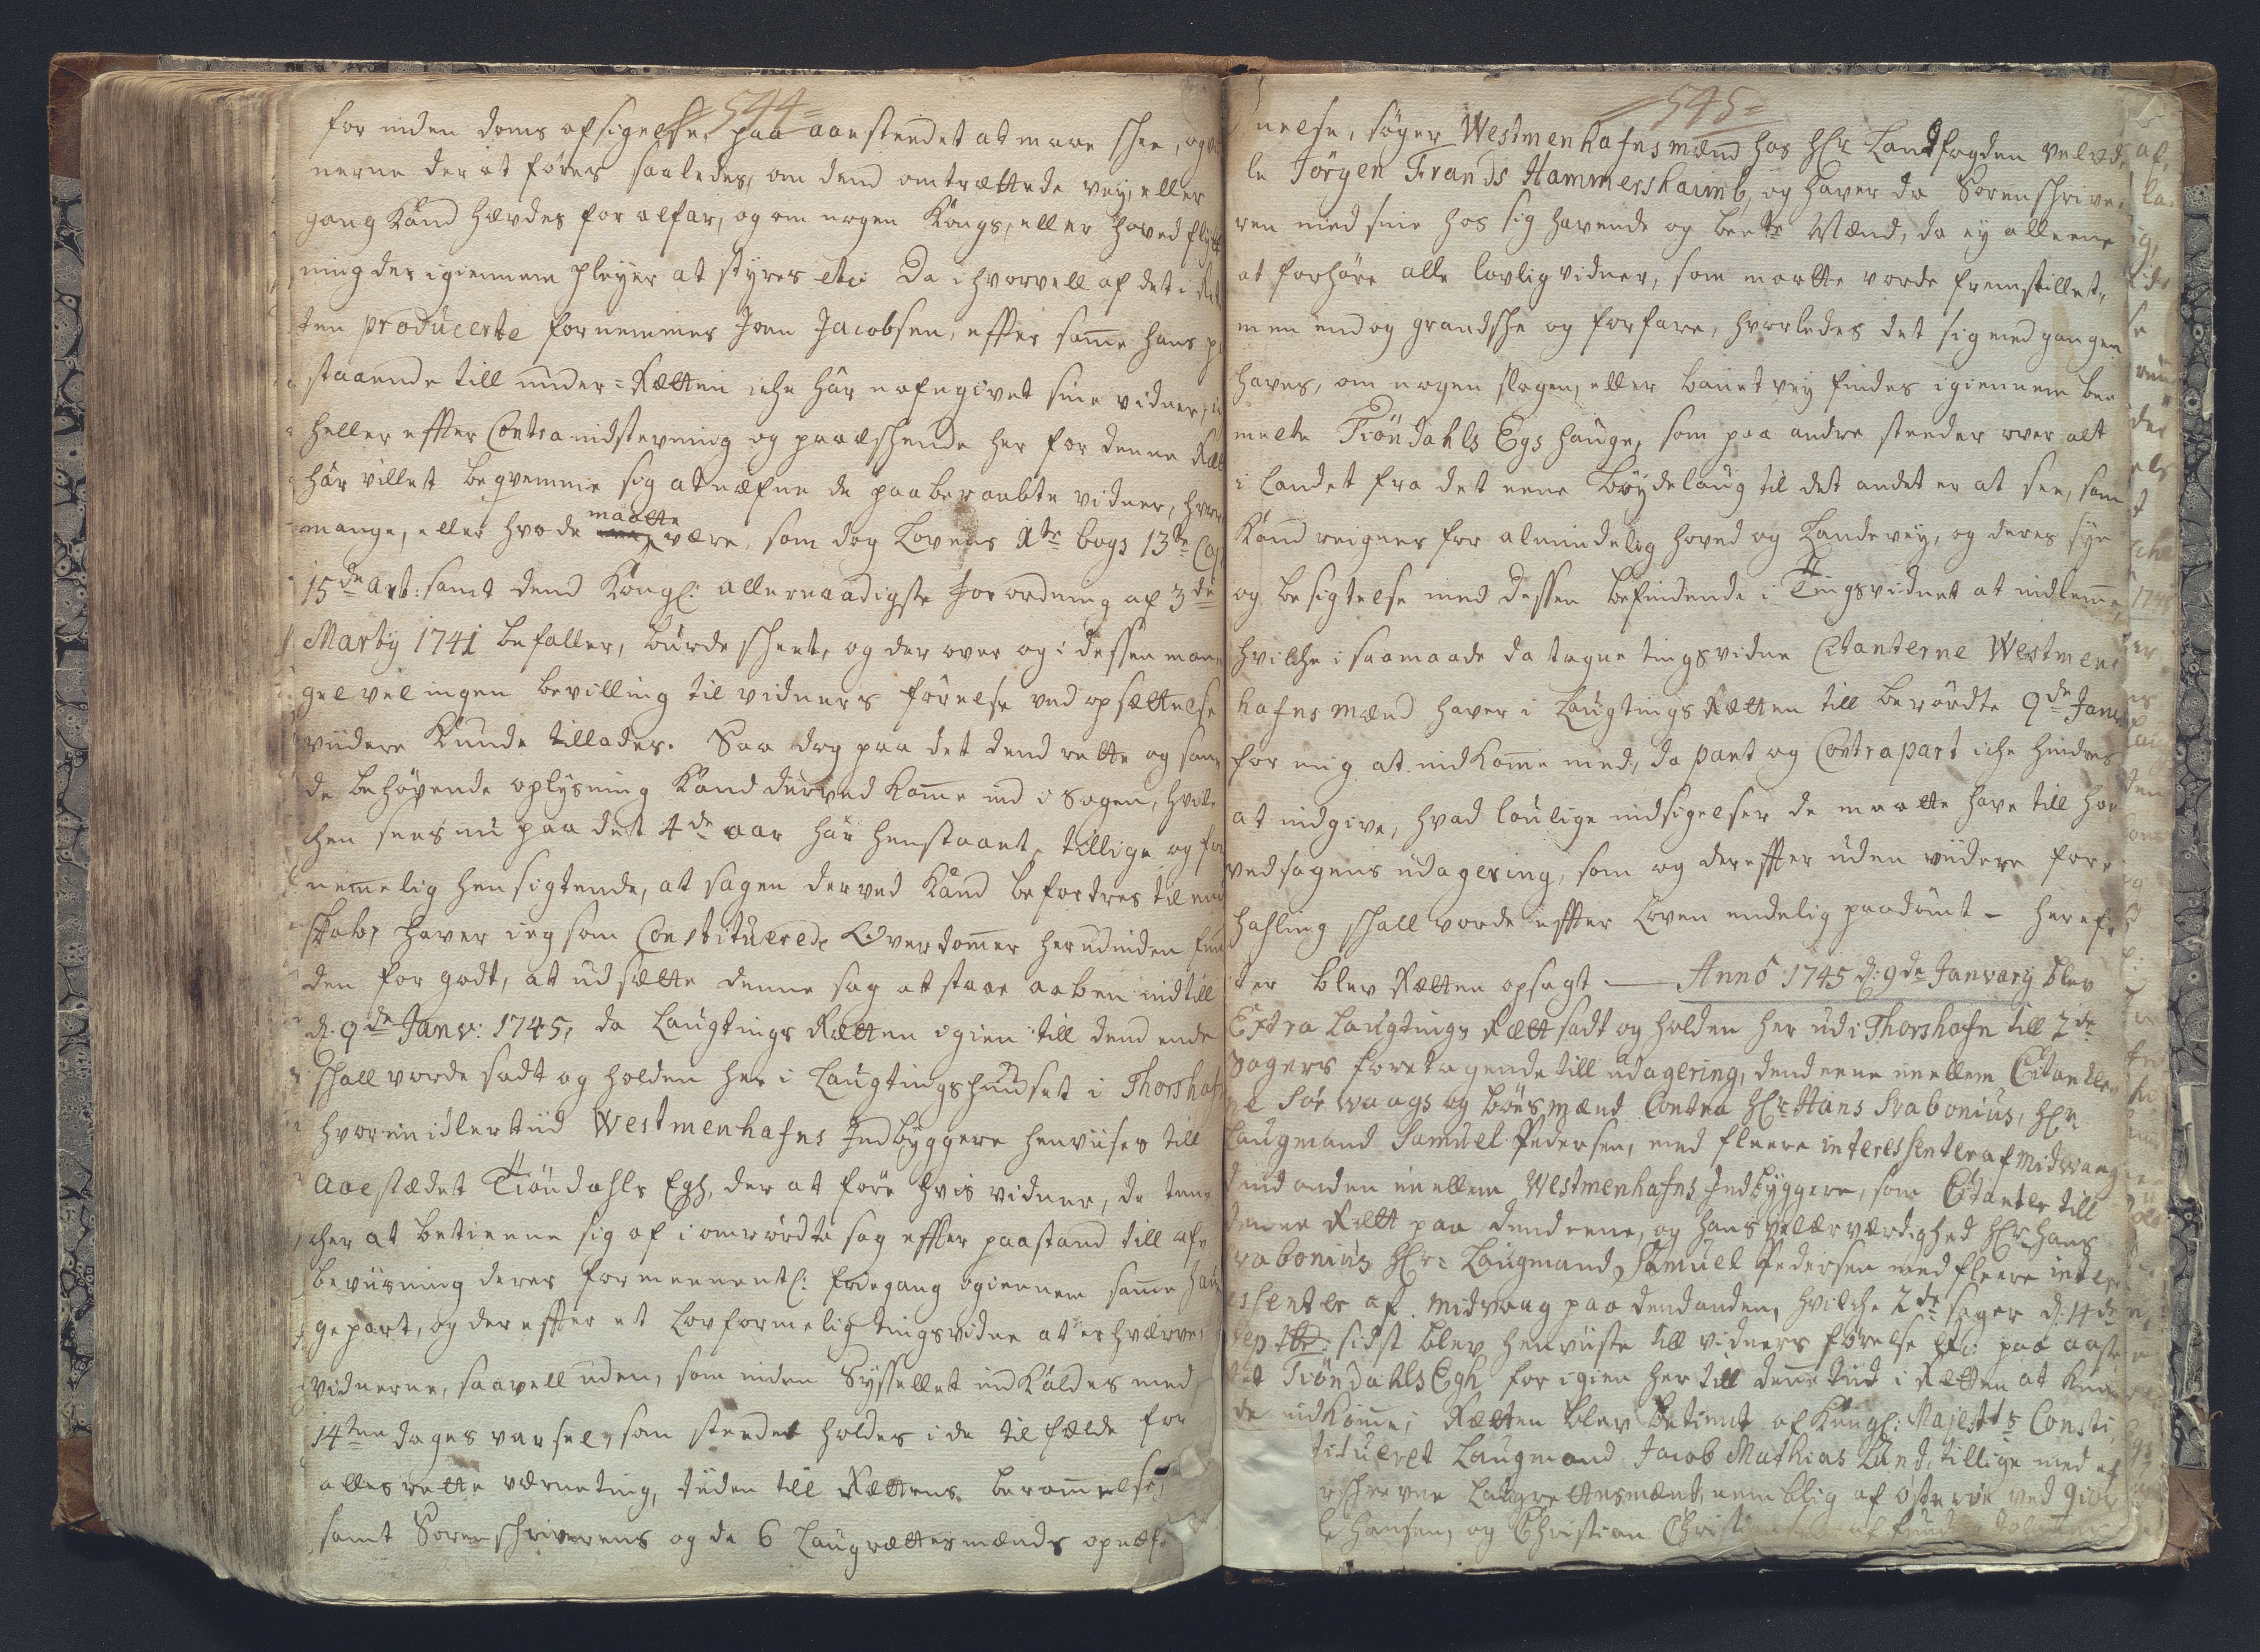 544
for inden doms afsigelse, paa aaestendet at maae skee, og vid
nerne der at føres saaledes, om dend omtrættede vey, eller
gang kand hævdes for alfar, og om nogen Kongs, eller hoved flytt
ning der igiennem pleyer at skyres etc: Da i hvorvell af det i Ret
ten producerte fornemmes Joen Jacobsen, effter samme hans på
staaende till under-Rætten iche här nafngivet sine vidner,
heller effter Contraindstevning og paaeschende her for denne Ræt
här villet beqvemme sig at næfne de paaberaabte vidner, hvor
mange, eller hvo de maatte være, som dog Lovens 1te bogs 13de Cap
15de art: samt dend Kongl: allernaadigste Forordning af 3de
Marty 1741 befaller, burde skeet, og der over og i dessen man
gel vel ingen bevilling til vidners førelse ved opsættelse
viidere kunde tillades. Saa dog paa det dend rette og san
de behøvende oplysning kand derved komme ind i Sagen, hvil
chen sees nu paa det 4de aar här henstaaet, tillige og for
nemmelig hensigtende, at sagen derved kand befordres til ende
skab, haver ieg som Constituerede Overdommer herudinden fun
den for godt, at udsætte denne sag at staae aaben indtill
d: 9de Janv: 1745, da Laugtings Rætten igien till dend ende
skall vorde sadt og holden her i Laugtingshuuset i Thorshafn
hvorimidlertiid Westmenhafns Indbyggere henviises till
Aaestædet Tiøndahls Egh, der at føre hvis vidner, de ten
cher at betienne sig af i omrørdte sag effter paastand till af
beviisning deres formeenentl: friegang igiennem samme hau
gepart, og der effter et Lovformelig tingsvidne at erhværve,
vidnerne, saavell uden, som inden Syssellet indkaldes med
14ten dages varsel, som steedet holdes i de tilfælde for
alles rette værneting, tiden till Rættens berammelse,
samt Sorenskriverens og de 6 Laugrættesmænds opnæf
545
nelse, søger Westmenhafnsmænd hos Hr Landfogden velæd
le Jörgen Frands Hammershaimb, og haver da Sorenskrive
ren med sine hos sig havende og beete Mænd, da ey alleene
at forhøre alle lovlig vidner, som maatte vorde fremstillet,
men endog grandske og forfare, hvorledes det sig med gangen
haves, om nogen slagen, eller banet vey findes igiennem bee
melte Tiöndahls Egs hauge, som paa andre steeder over alt
i landet fra det eene Böydelaug til det andet er at see, som
kand reignes for almindelig hoved og Landevey, og deres syn
og besigtelse med dessen befindende i Tingsvidnet at indlemme,
hvilche i saamaade da tagne tingsvidne Citanterne Westmen
hafns mænd haver i Laugtings Rætten till berørdte 9de Janv
for mig at indkomme med, da part og Contrapart iche hindres
at indgive, hvad loulige indsigelser de maatte have till har
ved sagens udagering, som og der effter uden viidere for
hahling skall vorde effter Loven endelig paadømt - Heref
ter blev Rætten opsagt. — Anno 1745 d: 9de Janvary blev
Extra Laugtings Rætt sadt og holden her udi Thorshafn till 2de
Sagers foretagende till udagering, dend eene imellem Citanter
ne Sörvaags og böesmænd Contra Hr Hans Srabonius, Hr
Laugmand Samuel Pedersen, med fleere interessenter af Midvaag
dend anden imellem Westmenhafns Indbyggere, som Citanter till
denne Rætt paa dend eene, og hans velærværdighed Hr Hans
Srabonius Hr: Laugmand Samuel Pedersen med fleere inter
essenter af Midvaag paa dend anden, hvilche 2de sager d: 14de
Septbr: sidst blev henviiste till vidners førelse etc: paa aaste
det Tiöndahls Egh for igien her till denne tiid i Rætten at kun
de indkomme; Rætten blev betient af Kongl: Majestts Consti
tueret Laugmand Jacob Mathias Lund, tillige med ef
terskrevne Laugrettesmænd, nemblig af østerøe ved giov
le Hansen, og Christian Christiansen af fund